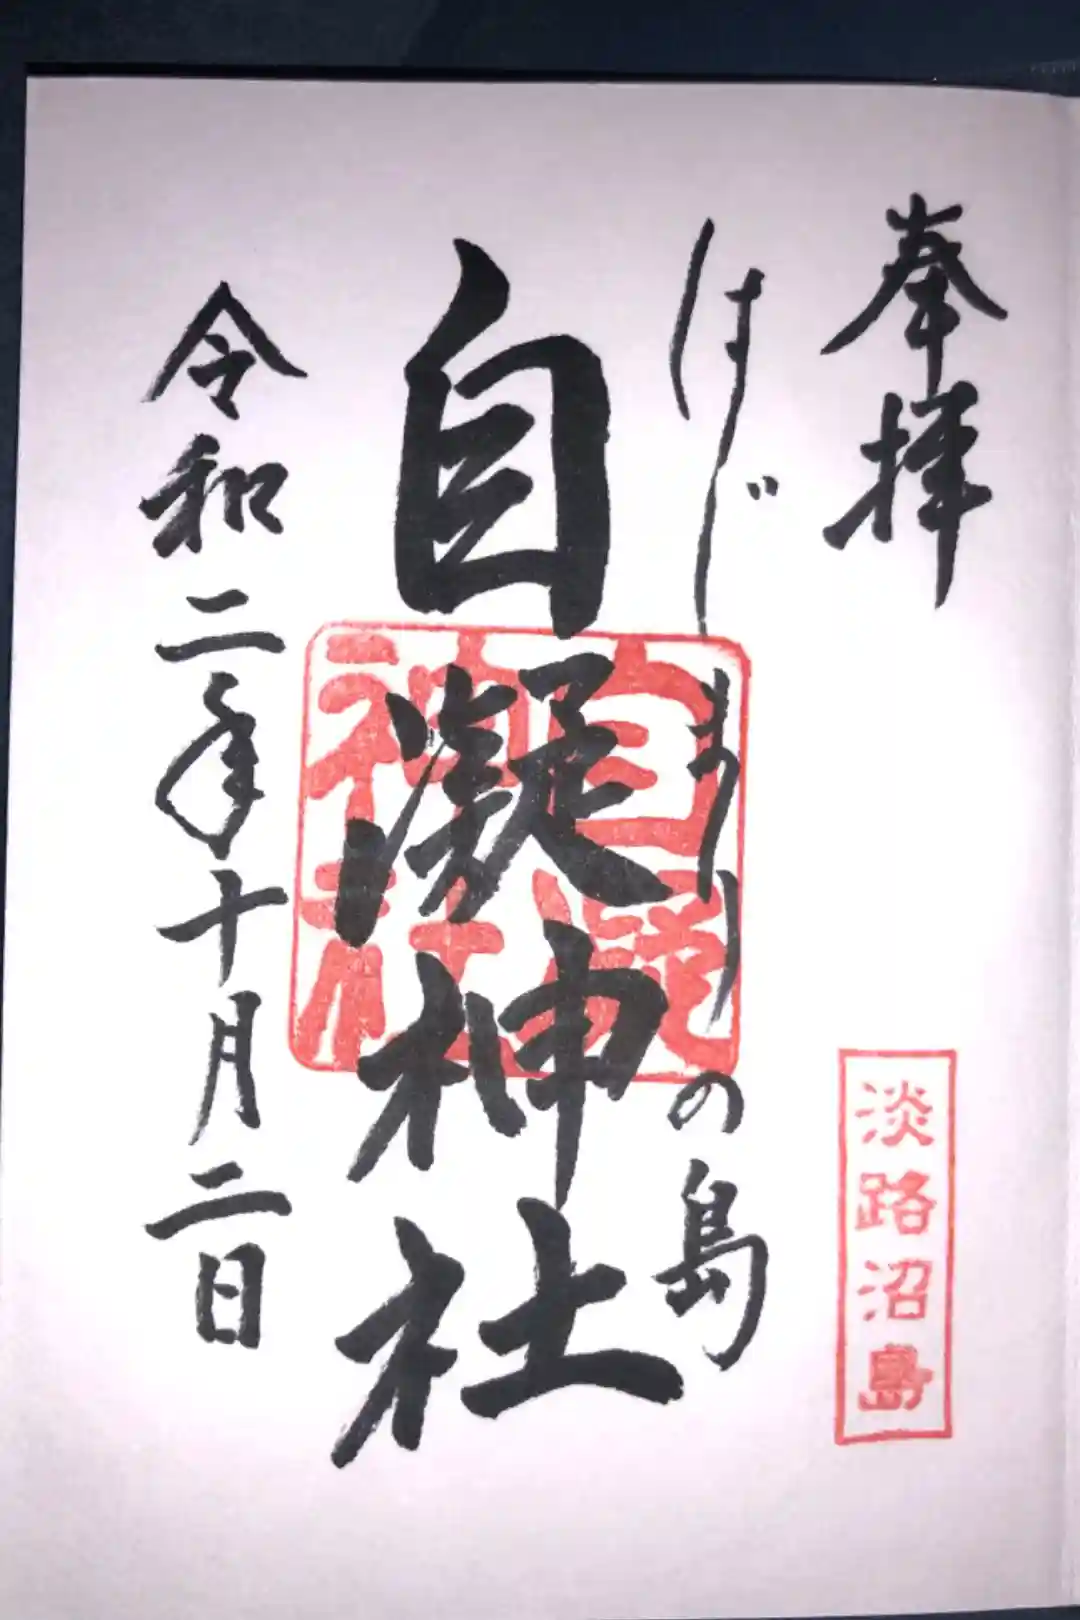 奉拝
淡路沼島
はじまりの島
自凝神社
自凝
神社
令和二年十月二日